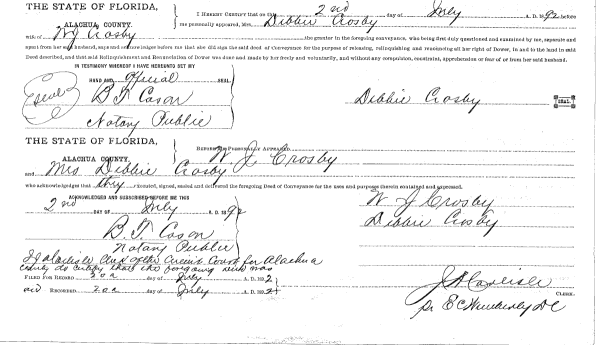 THE STATE OF FLORIDA,
ALACHUA COUNTY.
I HEREBY CERTIFY that on this 2nd day of July A. D. 1892, before
me personally appeared, Mrs. Dibbie Crosby
wife of W J Crosby the grantor in the foregoing conveyance, who being first duly questioned and examined by me, separate and
apart from her said husband, and acknowledges before me that she did sign the said deed of Conveyance for the purpose of releasing, relinquishing and renouncing all her right of Dower, in and to the land in said
Deed described, and that said Relinquishment and Renunciation of Dower was done and made by her freely and voluntarily, and without any compulsion, constraint, apprehension or fear of or from her said husband.
IN TESTIMONY WHEREOF I HAVE HEREUNTO SET MY
HAND AND official SEAL
Seal
B. F. Cason
Notary Public
Dibbie Crosby SEAL.
THE STATE OF FLORIDA,
ALACHUA COUNTY.
BEFORE ME PERSONALLY APPEARED W. J. Crosby
and Mrs Dibbie Crosby
who acknowledges that they executed, signed, sealed and delivered the foregoing Deed of Conveyance for the uses and purposes therein contained and expressed.
ACKNOWLEDGED AND SUBSCRIBED BEFORE ME THIS
2nd DAY OF July A. D. 1892
B. F. Cason
Notary Public
W J Crosby
Dibbie Crosby
Clerk of the Circuit Court for Alachua
County do certify that the foregoing deed was
FILED FOR RECORD day of July A. D. 1892
and RECORDED day of July A. D. 1892
J A Carlisle CLERK.
pr E C Wimberly DC